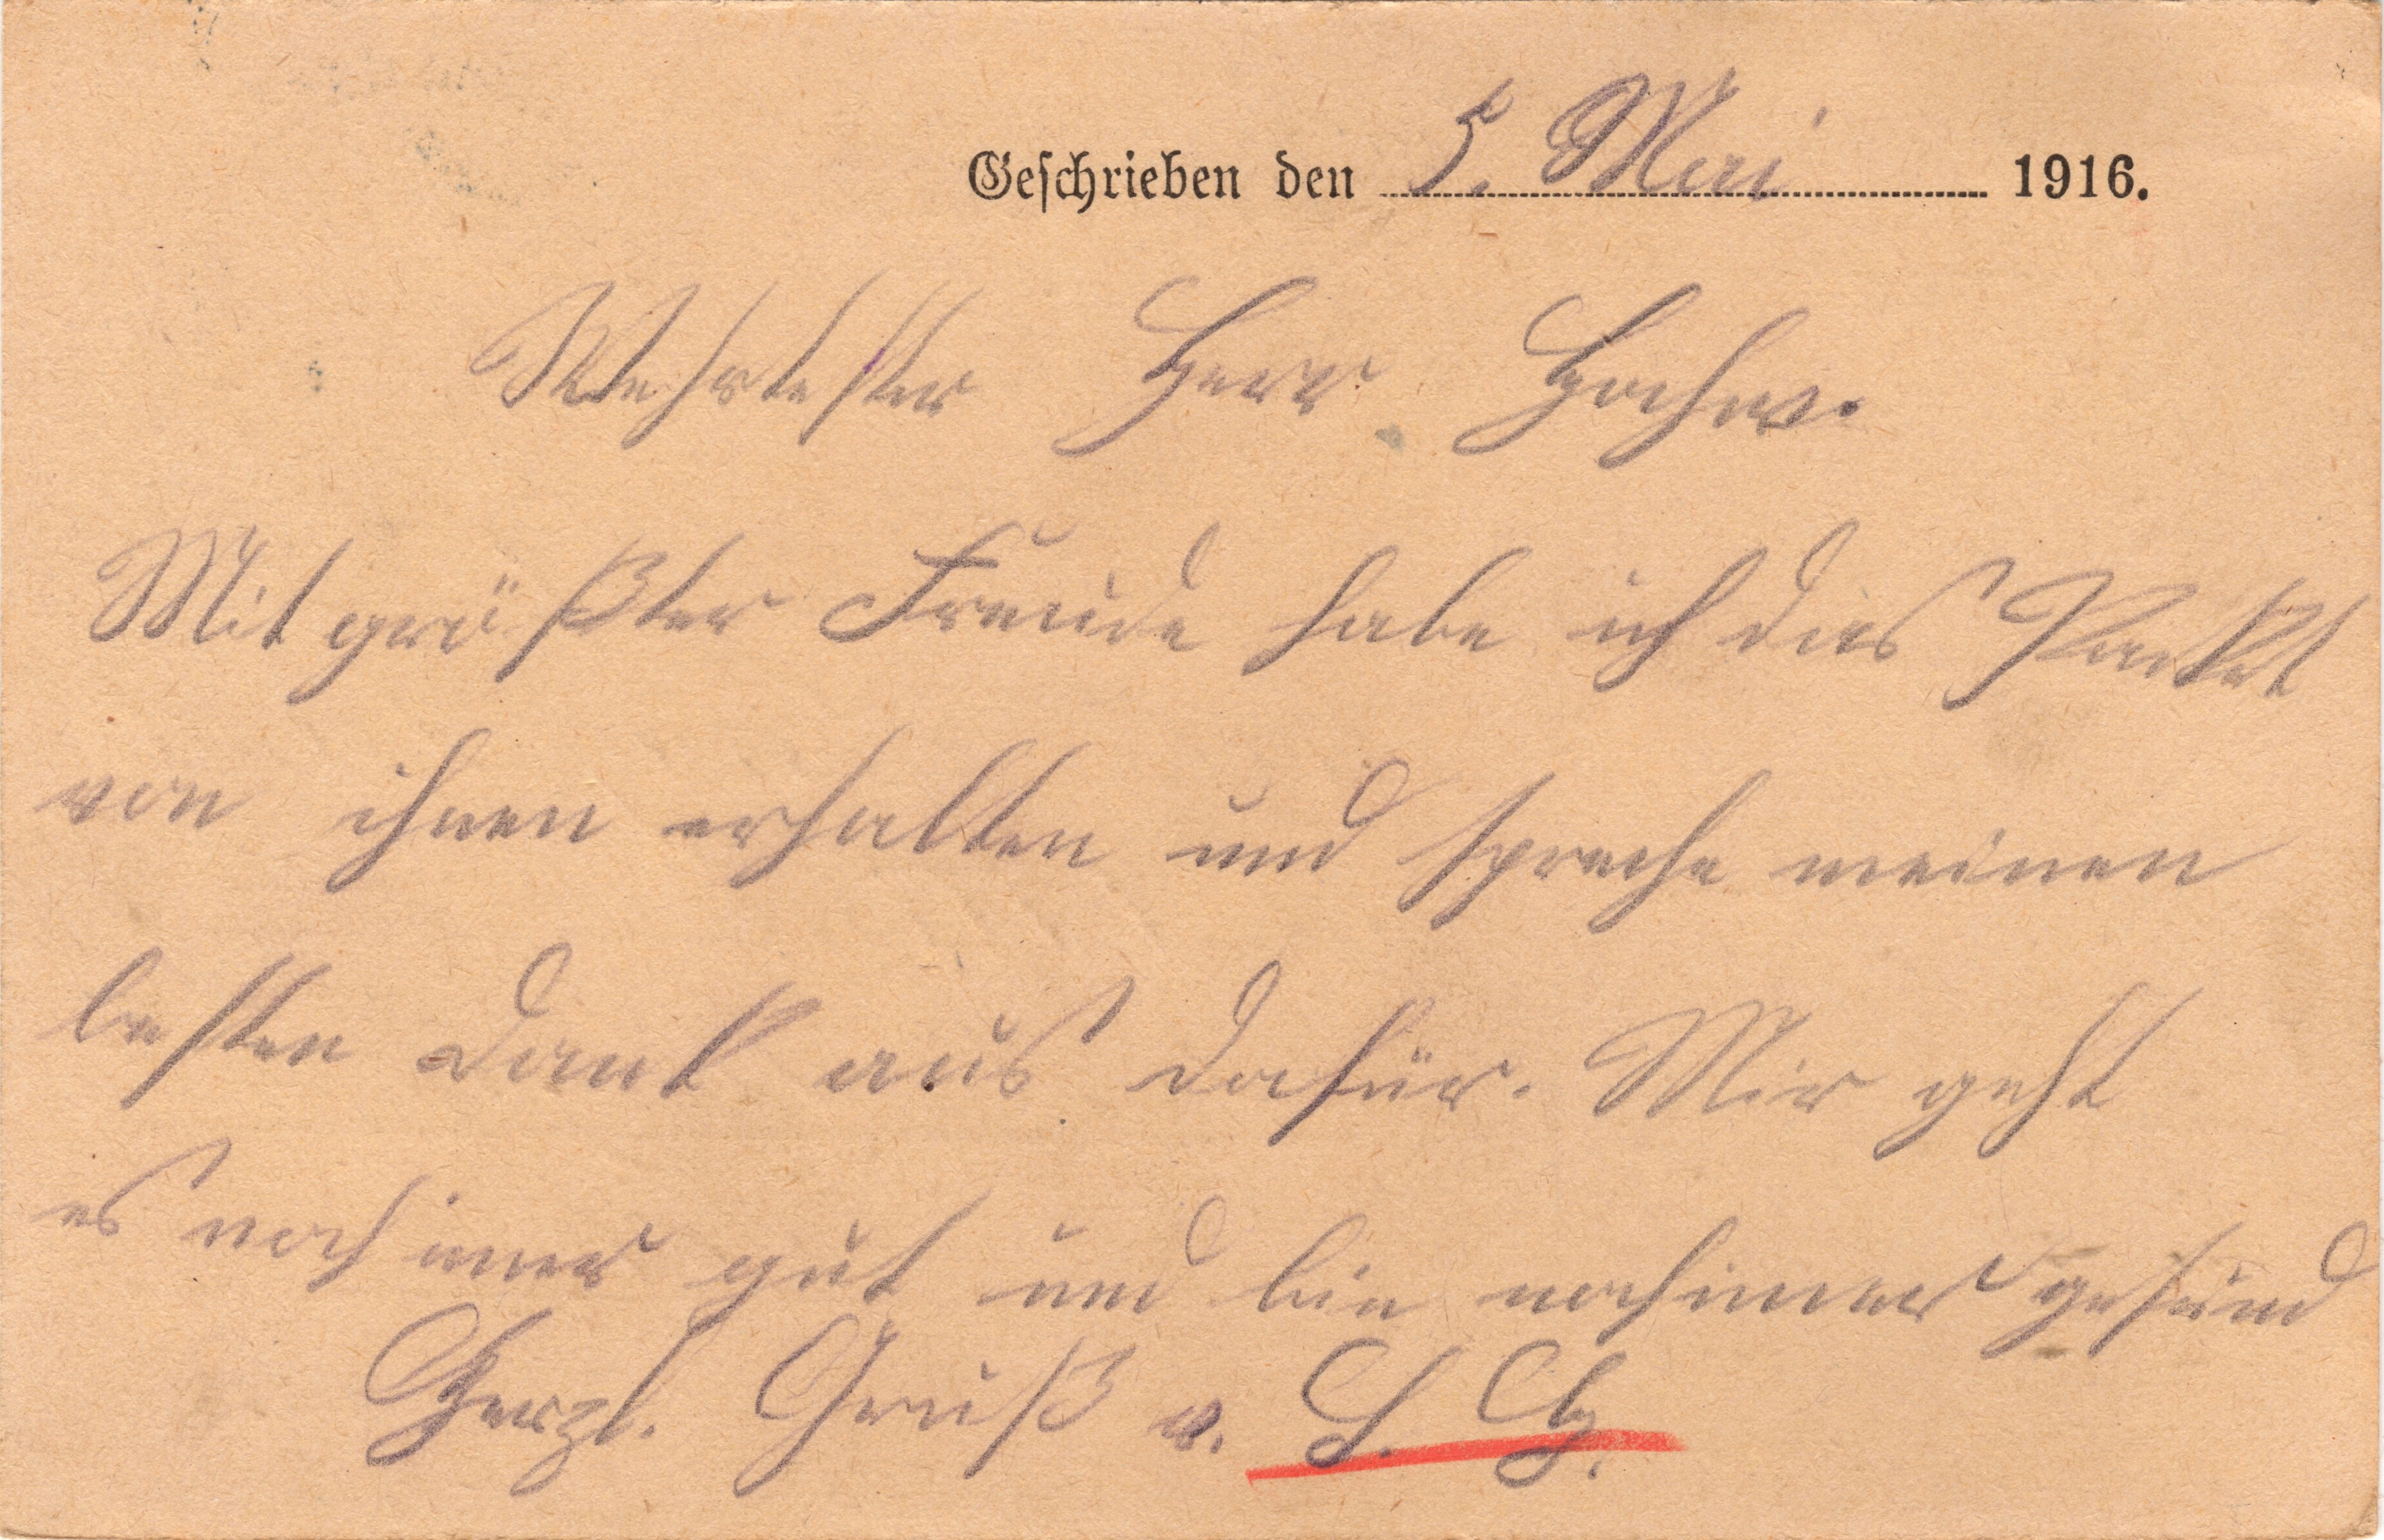 Geschrieben den 5. Mai 1916.
Wehrtester Herr Hochw.
Mit größter Freude habe ich dies Packet
von ihnen erhalten und spreche meinen
besten Dank aus dafür. Mir geht
es noch imer gut und bin noch imer gesund
Herzl. Gruß v.